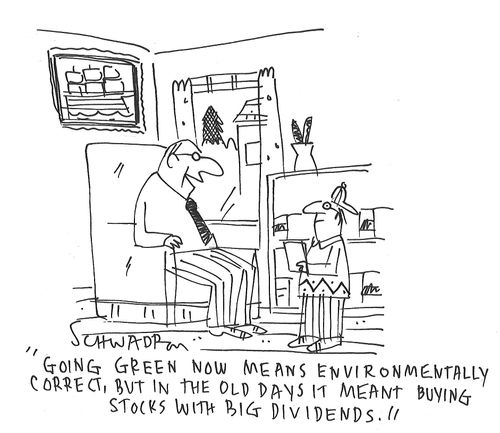 SCHWADRON
"GOING GREEN NOW MEANS ENVIRONMENTALLY
CORRECT, BUT IN THE OLD DAYS IT MEANT BUYING
STOCKS WITH BIG DIVIDENDS."